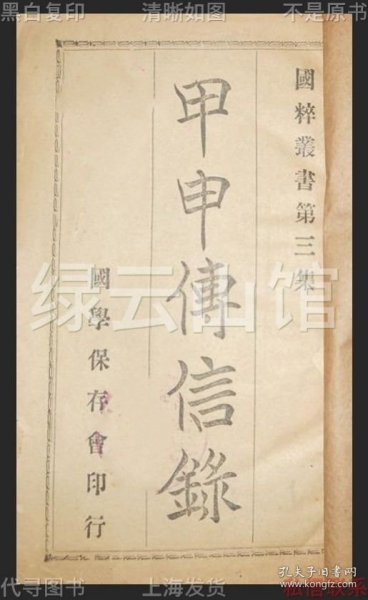 黑白复印 清晰如图 不是原书
國粹叢書第三集
甲申傳信錄
國學保存會印行
绿云山馆
孔夫子旧书网
www.kongfz.com
代寻图书 上海发货 私信联系